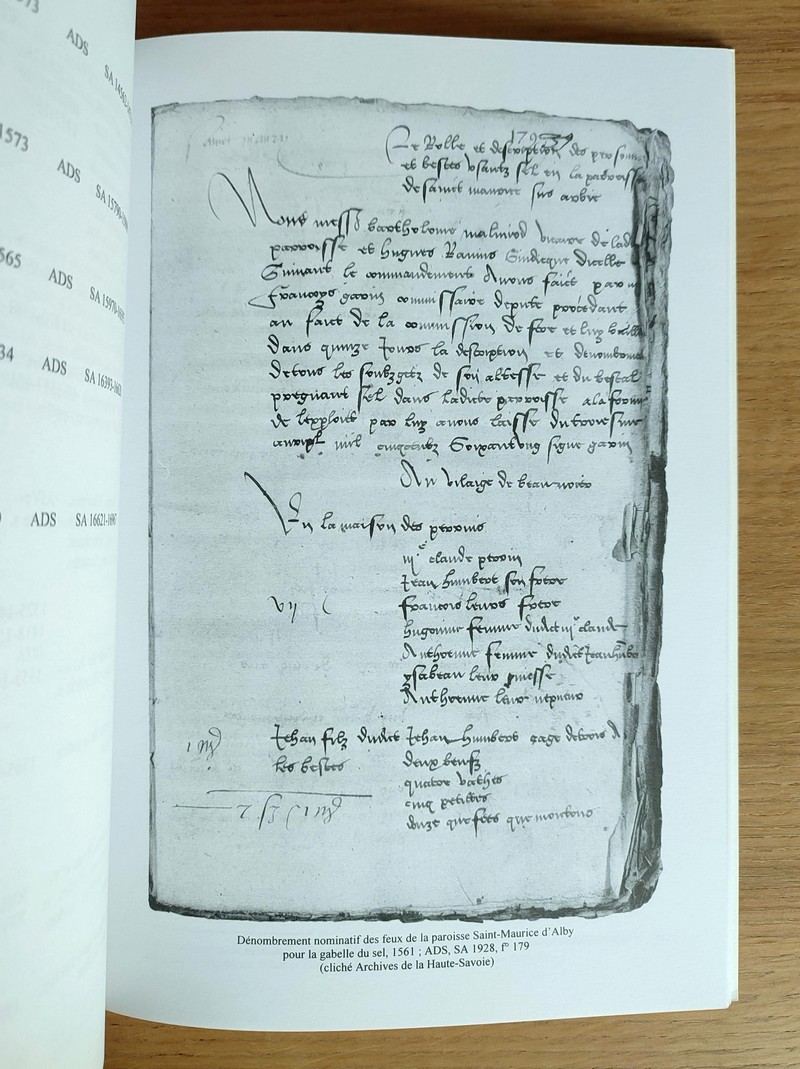 573
ADS
SA 14563-
1573
ADS
SA 15796-
565
ADS
SA 15970-
34
ADS
SA 16393-1663
ADS
SA 16621-1667
179
Le Rolle et description des personn
et bestes usantz sel en la parroiss
de sainct maurice sus arbie
Nous mess bartholome maliniod vicaire de lad
parroisse et hugues Ramus Sindicque dicelle
Suivant le commandement Avons faict par
francoys gavin commissaire depute procedant
au faict de la commission de
dans quinze Jours la description et denombrem
de tous les soubzgetz de son altesse et du bestal
pregnant sel dans ladicte parroisse a la forme
de lexploict par luy a nous laisse du troysiesme
mil cinq centz Soixante ung signe gavin
Au vilaige de beauvoir
En la maison des perrins
claude perrin
Jean humbert son frere
vij
francois leurs frere
hugonine femme dudict claude
Anthoenne femme dudict Jean humbe
ysabeau leur
Anthoenne leur nepveur
Jehan filz dudict Jehan humbert eage de trois A
les bestes
deux beufz
quatre vaches
cinq petittes
que fees que moutons
Dénombrement nominatif des feux de la paroisse Saint-Maurice d'Alby
pour la gabelle du sel, 1561 ; ADS, SA 1928, f° 179
(cliché Archives de la Haute-Savoie)